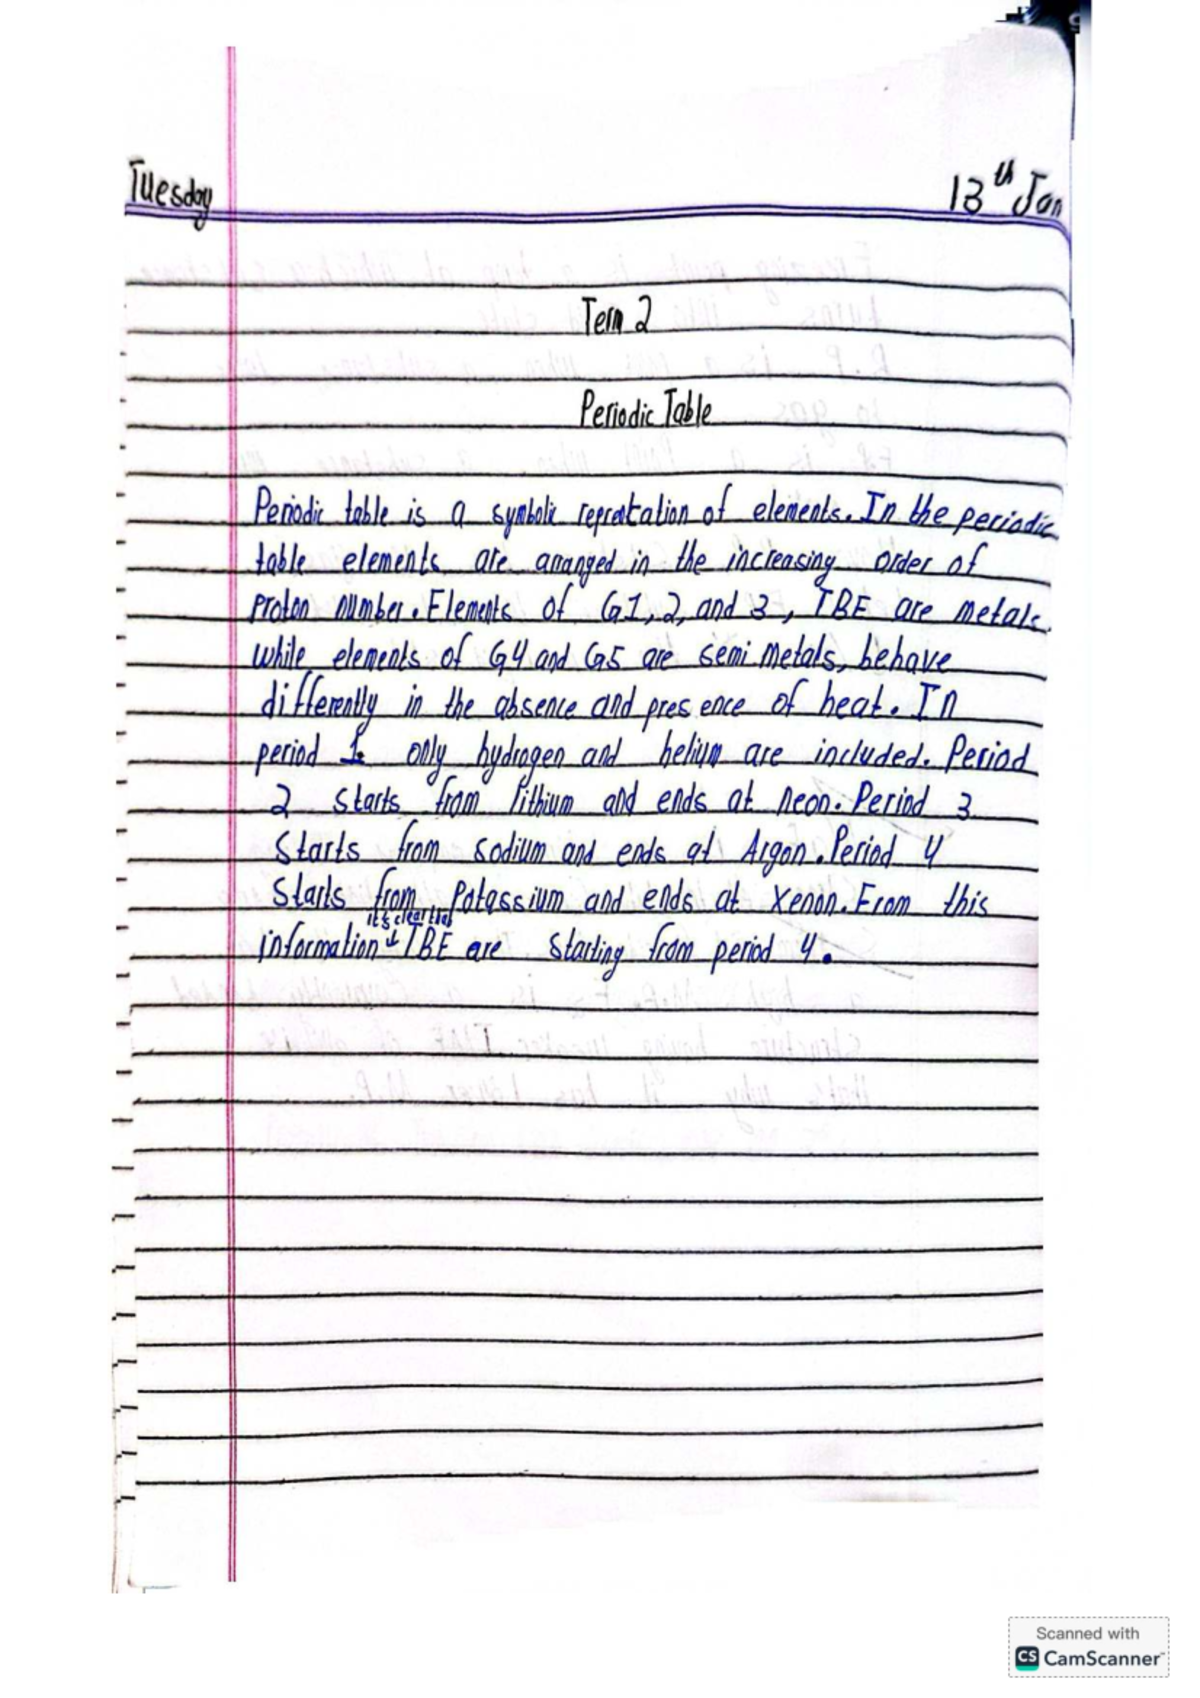 Tuesday
13th Jan
Term 2
Periodic Table
Periodic table is a symbolic reprentation of elements. In the periodic
table elements are arranged in the increasing order of
proton number. Elements of G1, 2, and 3, TBE are metals
while elements of G4 and G5 are semi metals, behave
differently in the absence and presence of heat. In
period 1 only hydrogen and helium are included. Period
2 starts from lithium and ends at neon. Period 3
Starts from sodium and ends at Argon. Period 4
Starts from Potassium and ends at Xenon. From this
it's clear that
information TBE are starting from period 4.
Scanned with
CS CamScanner